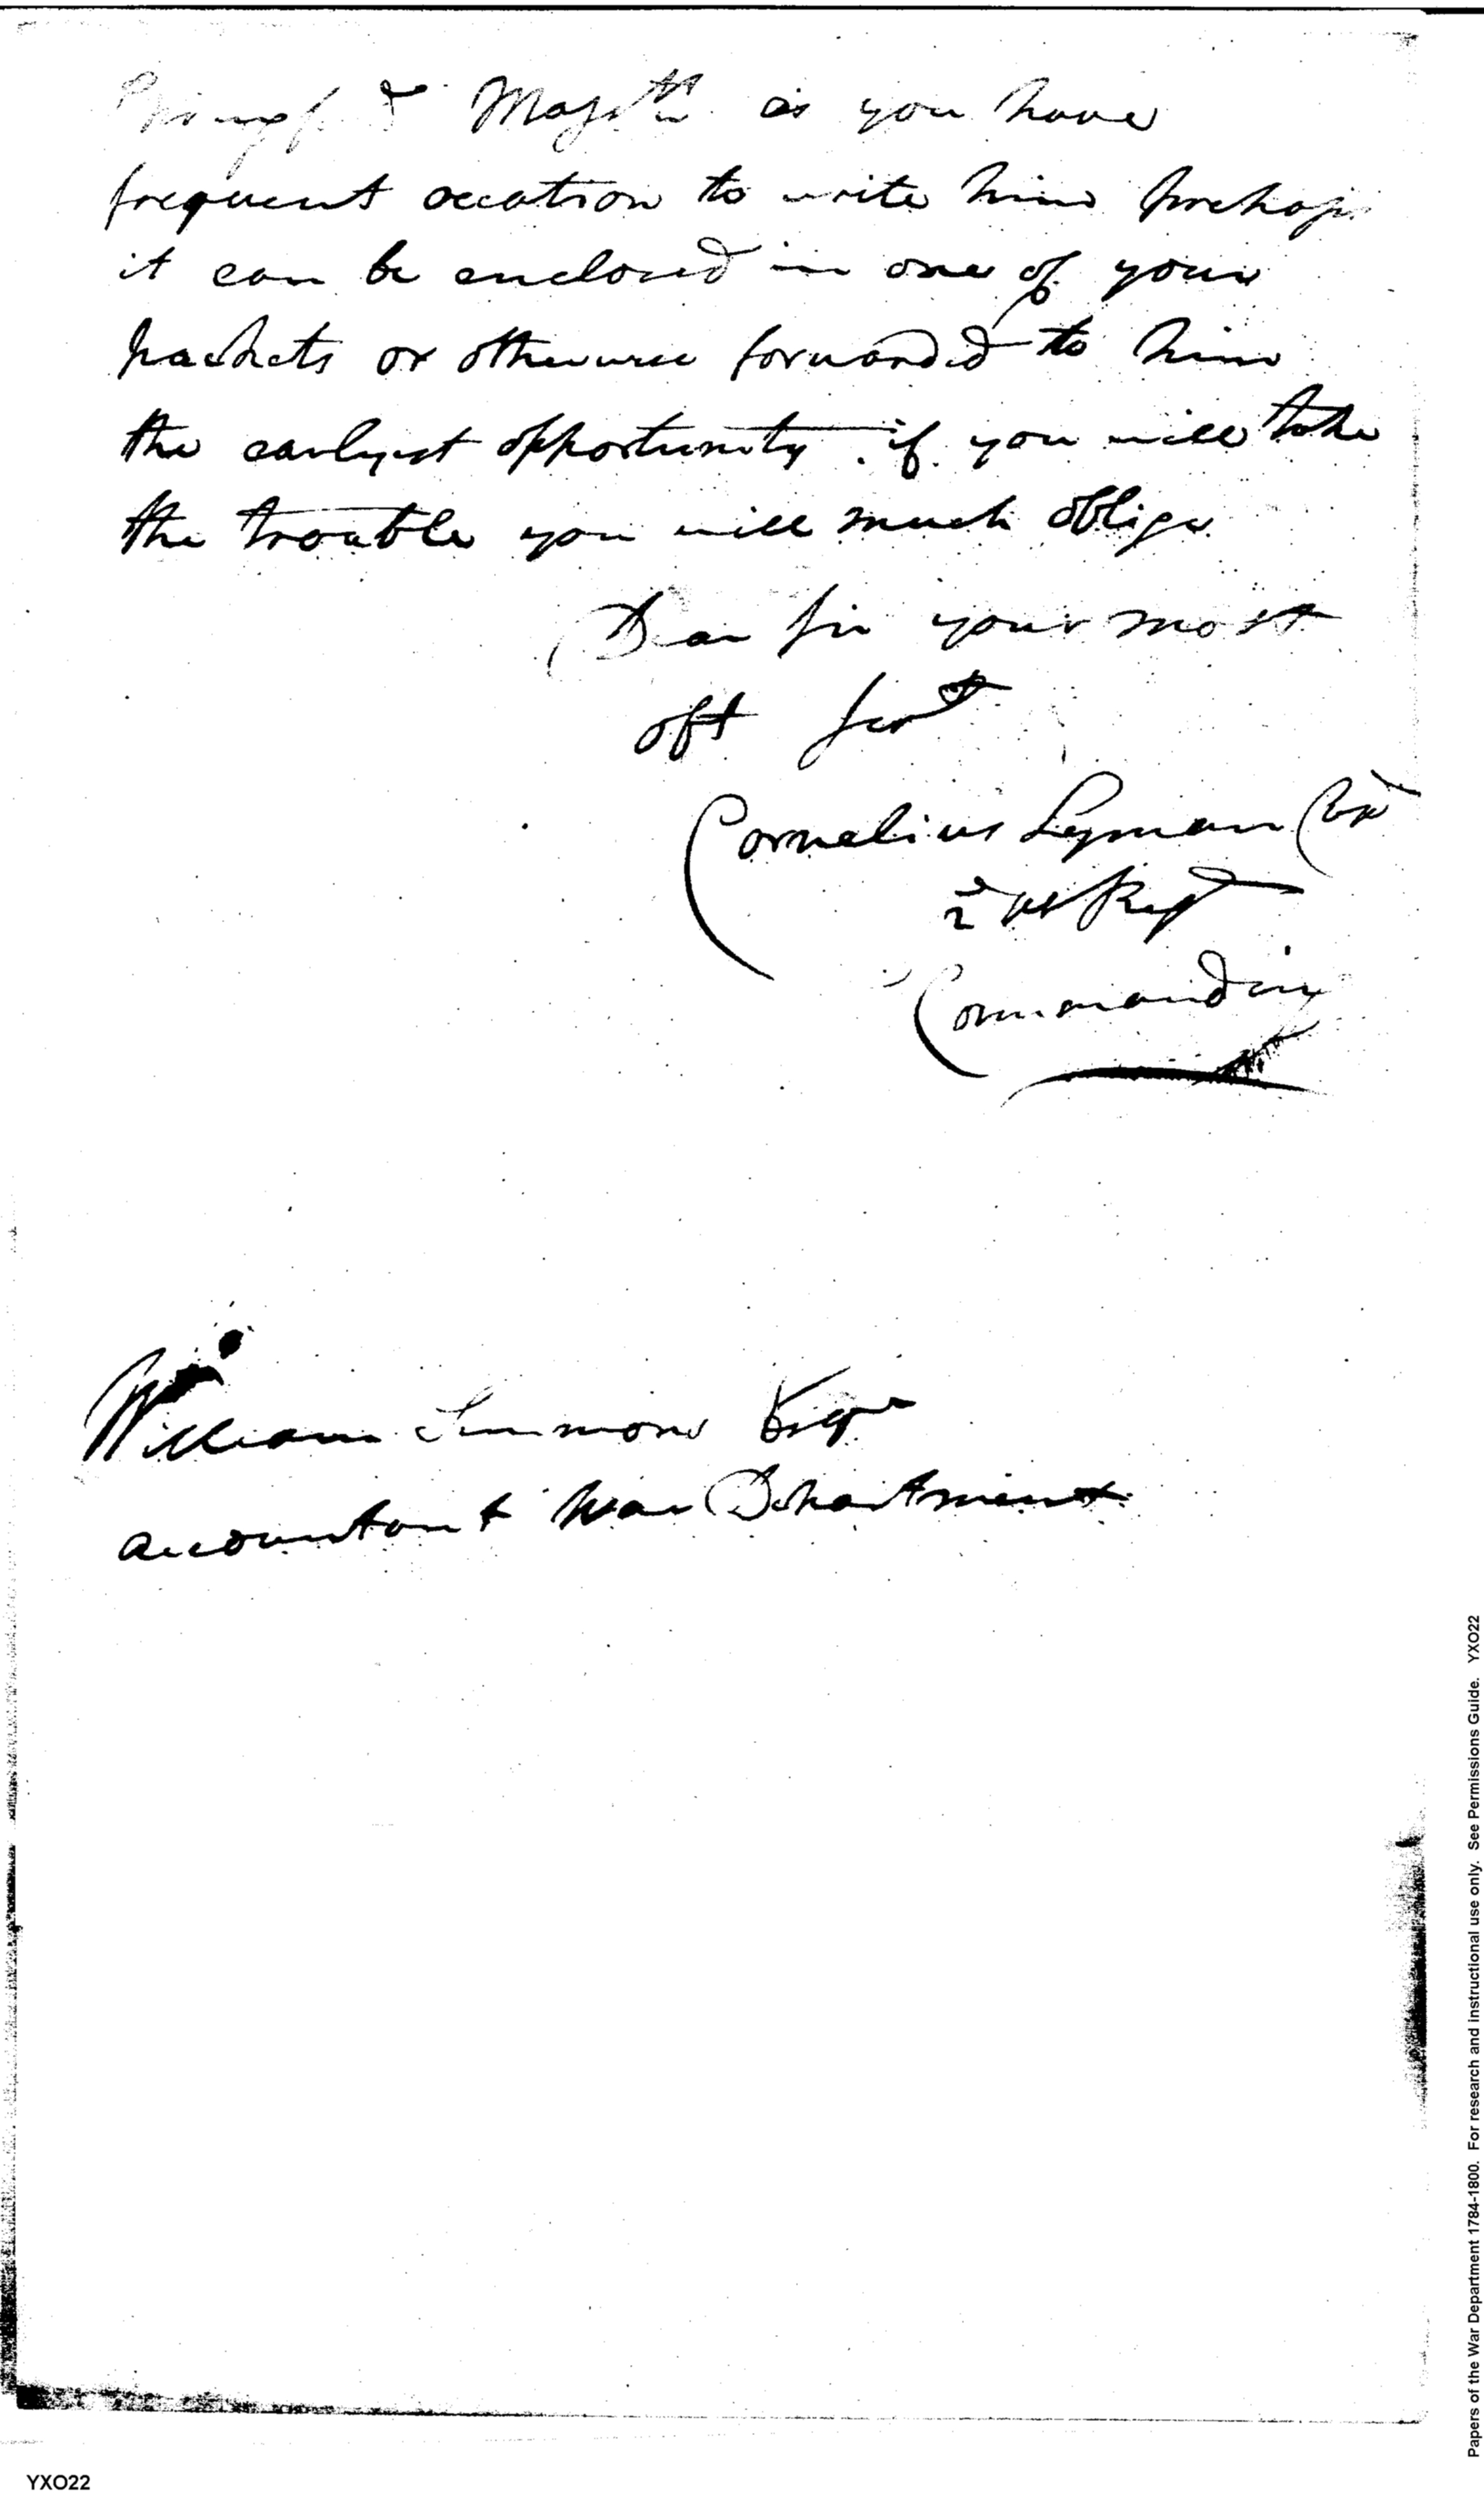 Springfd Massttts as you have
frequent occation to write him porhaps
it can be enclosed in one of your
packets or otherwise forwarded to him
the earlyest opportunity if you will take
the trouble you will much oblige
Dear Sir your most
obt Servt
Cornelius Lyman Capt
2d Regt
Commanding
William Simmons Esqr
accountant War Department
Papers of the War Department 1784-1800. For research and instructional use only. See Permissions Guide. YXO22
YXO22